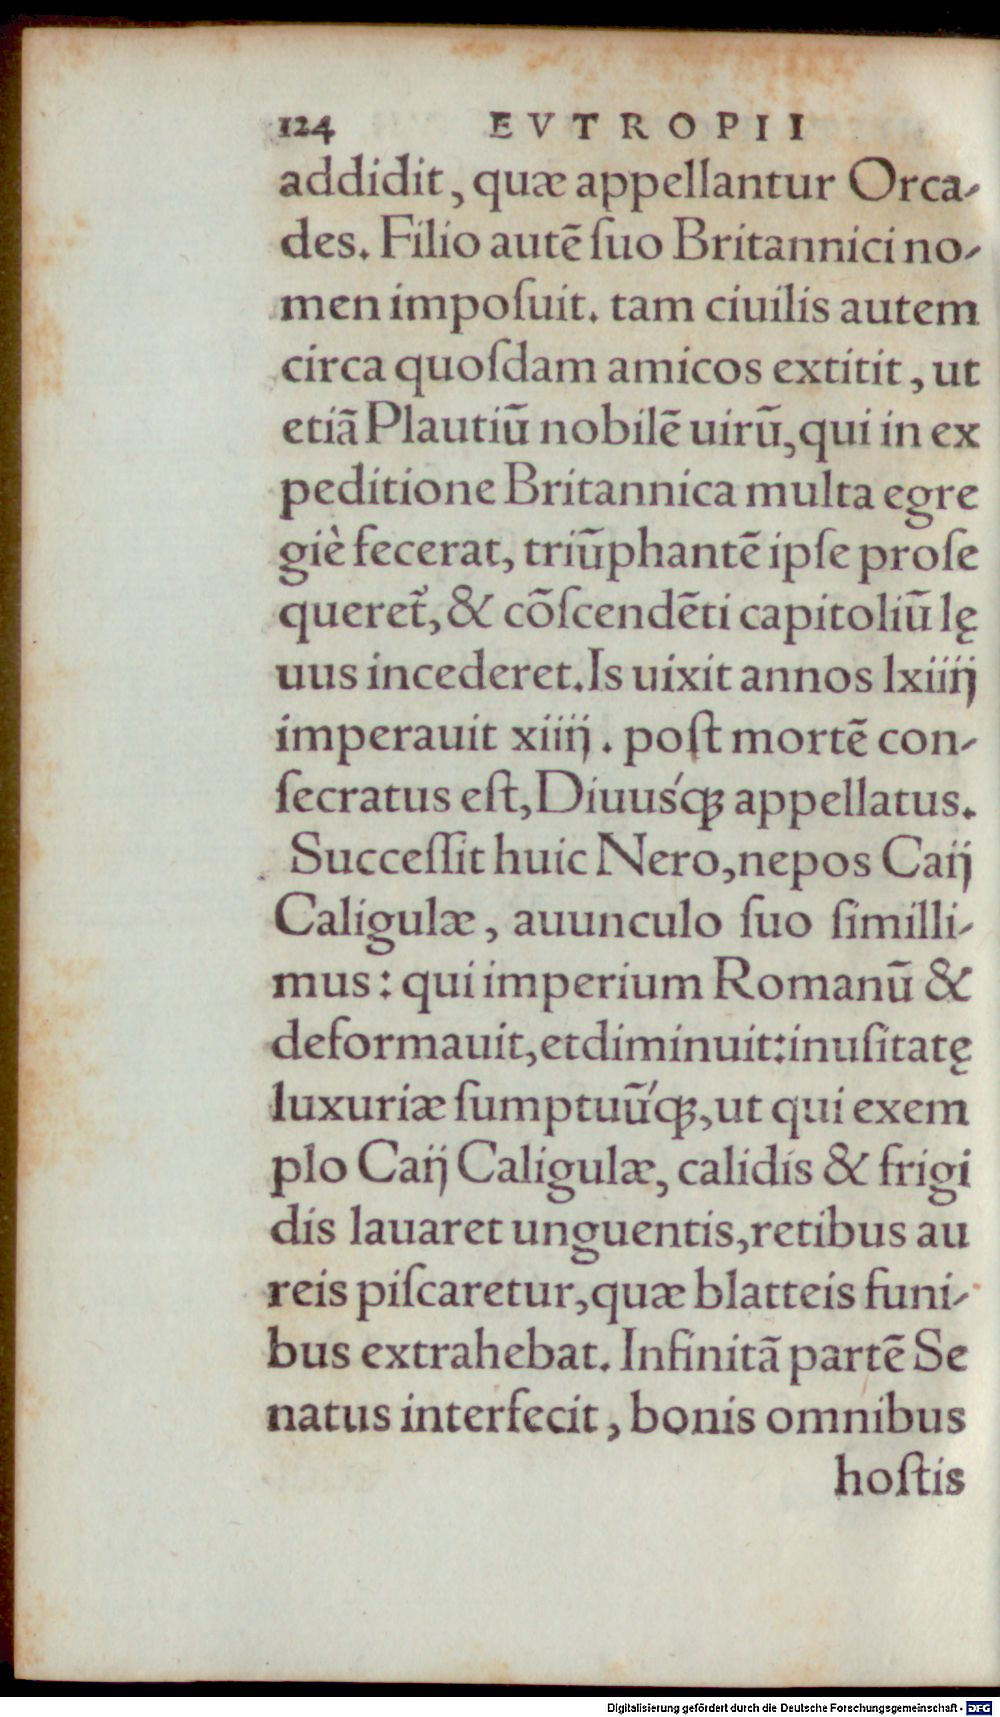 124 EVTROPII
addidit, quæ appellantur Orca-
des. Filio autē ſuo Britannici no-
men impoſuit. tam ciuilis autem
circa quoſdam amicos extitit, ut
etiā Plautiū nobilē uirū, qui in ex
peditione Britannica multa egre
giè fecerat, triūphantē ipſe proſe
queret᷑, & cōſcendēti capitoliū lę
uus incederet. Is uixit annos lxiiij
imperauit xiiij. poſt mortē con-
ſecratus eſt, Diuusq́ꝫ appellatus.
Succeſſit huic Nero, nepos Caij
Caligulæ, auunculo ſuo ſimilli-
mus: qui imperium Romanū &
deformauit, et diminuit: inuſitatę
luxuriæ ſumptuūq́ꝫ, ut qui exem
plo Caij Caligulæ, calidis & frigi
dis lauaret unguentis, retibus au
reis piſcaretur, quæ blatteis funi-
bus extrahebat. Infinitā partē Se
natus interfecit, bonis omnibus
hoſtis
Digitalisierung gefördert durch die Deutsche Forschungsgemeinschaft - DFG